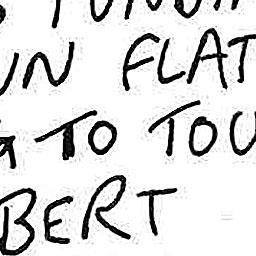 UN FLAT
TO TOU
BERT